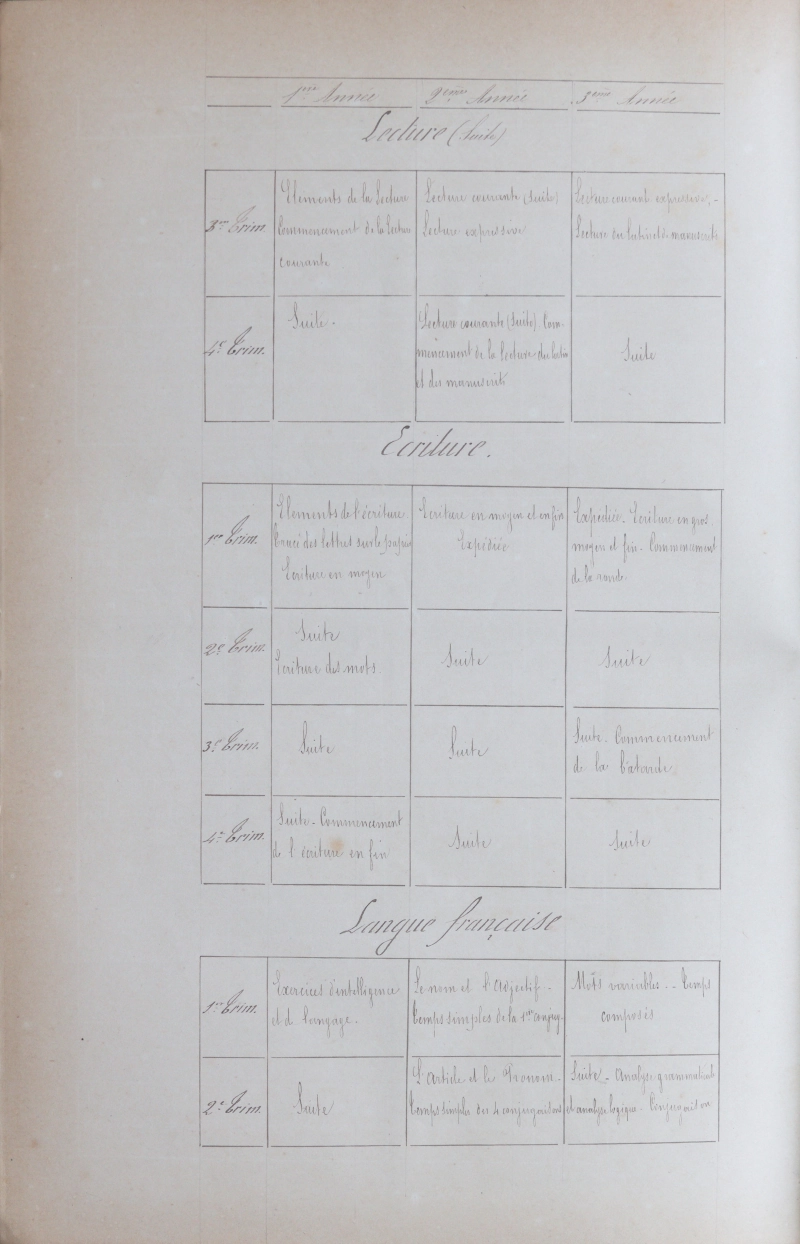 1ère Année 2ème Année 3ème Année
Lecture (Suite)
3me Trim.
Elements de la Lecture
Commencement de la Lecture
courante
Lecture courante (Suite)
Lecture expressive
Lecture courante expressive. -
Lecture du latin et de manuscrits
4e Trim.
Suite.
Lecture courante (Suite). Com-
mencement de la Lecture du latin
et des manuscrits
Suite
Ecriture.
1er Trim.
Elements de l'écriture.
Tracé des lettres sur le papier
Ecriture en moyen
Ecriture en moyen et en fin
Expédiée
Expédiée - Ecriture en gros
moyen et fin - Commencement
de la ronde.
2e Trim.
Suite
Ecriture des mots.
Suite
Suite
3e Trim.
Suite
Suite
Suite - Commencement
de la bâtarde.
4e Trim.
Suite - Commencement
de l'écriture en fin
Suite
Suite
Langue française
1er Trim.
Exercices d'intelligence
et de langage.
Le nom et l'Adjectif. -
Temps simples de la 1ere conjug.
Mots variables. - Temps
composés
2e Trim.
Suite
L'Article et le Pronom. -
Temps simples des 4 conjugaisons
Suite - Analyse grammaticale
et analyse logique - Conjugaison